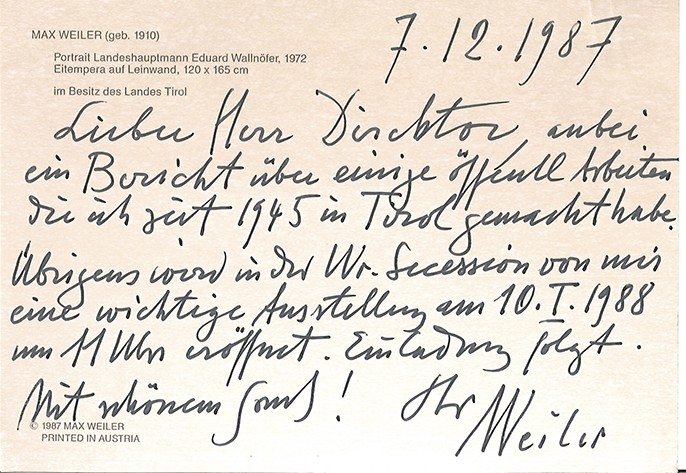 MAX WEILER (geb. 1910)
Portrait Landeshauptmann Eduard Wallnöfer, 1972
Eitempera auf Leinwand, 120 x 165 cm
im Besitz des Landes Tirol
7.12.1987
Lieber Herr Direktor, anbei
ein Bericht über einige öffentl Arbeiten
die ich seit 1945 in Tirol gemacht habe.
Übrigens wird in der Wr. Secession von mir
eine wichtige Ausstellung am 10. I. 1988
um 11 Uhr eröffnet. Einladung folgt.
Mit schönem Gruß! Ihr
Weiler
© 1987 MAX WEILER
PRINTED IN AUSTRIA